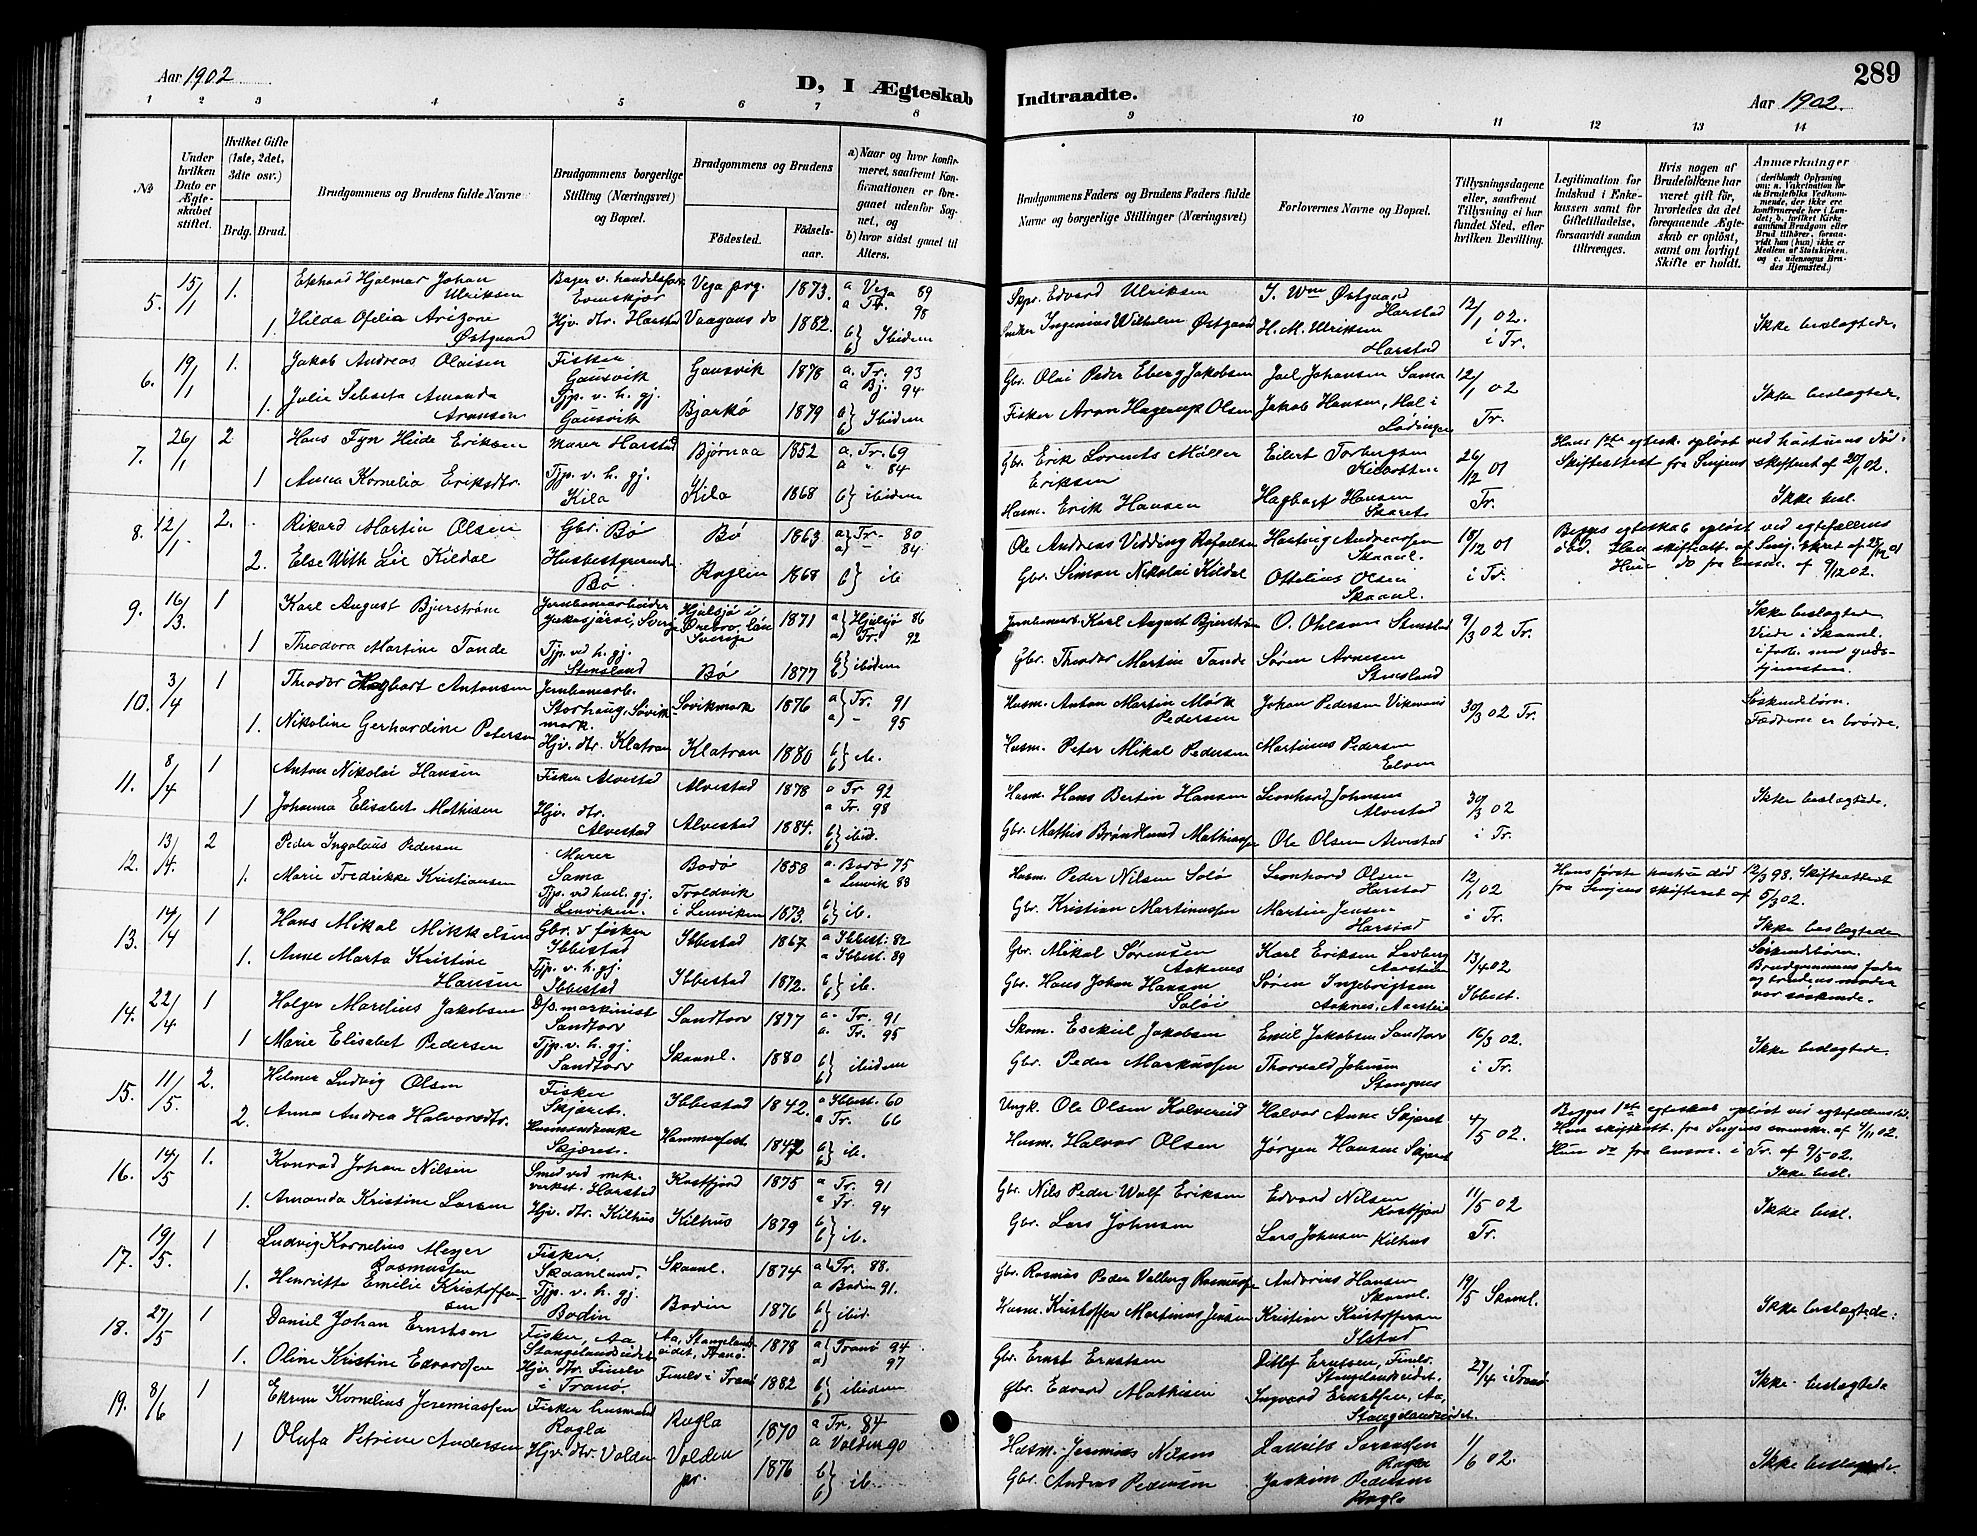 289
Aar 1902
D, I Ægteskab
Indtraadte.
Aar 1902.
1 2 3 4 5 6 7 8 9 10 11 12 13 14
No
Under hvilken Dato er Ægteskabet stiftet.
Hvilket Gifte (1ste, 2det, 3die osv.)
Brdg. Brud.
Brudgommens og Brudens fulde Navne
Brudgommens borgerlige Stilling (Næringsvei) og Bopæl.
Brudgommens og Brudens
Fødested.
Fødselsaar.
a) Naar og hvor konfirmeret, saafremt Konfirmationen er foregaaet udenfor Sognet, og
b) hvor sidst gaaet til Alters.
Brudgommens Faders og Brudens Faders fulde Navne og borgerlige Stillinger (Næringsvei)
Forlovernes Navne og Bopæl.
Tillysningsdagene eller, saafremt Tillysning ei har fundet Sted, efter hvilken Bevilling.
Legitimation for Indskud i Enkekassen samt for Giftetilladelse, forsaavidt saadan tiltrænges.
Hvis nogen af Brudefolkene har været gift før, hvorledes da det foregaaende Ægteskab er opløst, samt om lovligt Skifte er holdt.
Anmærkninger (deriblandt Oplysning om: a. Vakcination for de Brudefolks Vedkommende, der ikke ere konfirmerede her i Landet; b. hvilket Kirkesamfund Brudgom eller Brud tilhører, forsaavidt han (hun) ikke er Medlem af Statskirken, og c. udensogns Brudes Hjemsted.)
5. 15/1 1. Hjalmar Johan Ulriksen Bager v. Evenskjør Vega prg. 1873. a Vega 89
1. Hilda Ofelia Arizone Østgaard Hjv. dtr. Harstad Vaagans do 1882. a Tr. 98 b} Ibidem
Skpr. Edvard Ulriksen J. Wm Østgaard Harstad 12/1 02. i Tr.
Ingenius Wilhelm Østgaard H. M. Ulriksen Harstad Ikke beslægtede.
6. 19/1 1. Jakob Andreas Olaisen Fisker Gausvik Gausvik 1878 a. Tr. 93
1. Julie Amanda Aronsen Tjp. v. h. gj. Gausvik Bjarkø 1879 a Bj. 94 b} Ibidem
Gbr. Olai Peder Eberg Jakobsen Joel Johansen Sama 12/1 02 Tr.
Fisker Aron Hagerup Olsen Jakob Hansen, Hol i Lødingen Ikke beslægtede.
7. 26/1 2 Hans Fyn Heide Eriksen Murer Harstad Bjørnaa 1852 a. Tr. 69
1 Anna Kornelia Eriksdtr. Tjp. v. h. gj. Kila Kila 1868 a " 84 b} ibidem
Gbr. Erik Lorents Møller Eriksen Eilert Torbergsen 26/12 01 Tr.
Husm. Erik Hansen Hagbart Hansen
Hans 1ste egtesk. opløst ved hustruens død: Skifteattest fra Senjens skifteret af 20/1 02. Ikke besl.
8. 12/1 2. Rikard Martin Olsen Gbr. Bø Bø 1863 a} Tr. 80
2. Else With Lie Kildal Husbestyrerinde Bø 1868 a} - 84. b} ib
Ole Andreas Vidding Rafaelsen Hartvig Andreassen Skaanl. 18/12 01 i Tr.
Gbr. Simon Nikolai Kildal Ottelius Olsen Skaanl.
Begges egteskab opløst ved egtefællens død. Han skifteatt. af Senj. skret af 28/12 01 Hun do fra lensm. af
9. 16/3 1 Karl August Bjerstrøm Jernbanearbeider Jukasjärvi, Sverige Hjulsjø i Ørebro län Sverige 1871 a} Hjulsjø 86
1 Theodora Martine Tande Tjp. ved h. gj. Stensland Bø 1877 a} Tr. 92 b} ibidem
Jernbanearb. Karl August Bjerstrøm O. Ohlsson Stensland 9/3 02 Tr.
Gbr. Theodor Martin Tande Søren Arnesen Stensland
Ikke beslægtede Viede i Skaanl. i forb. med gudstjenesten.
10. 3/4 1 Theodor Hagbart Antonsen Jernbanearb. Storhaug, Søvikmark Søvikmark 1876 a} Tr. 91
1. Nikoline Gerhardine Petersen Hjv. dtr. Klatran Klatran 1880 a} - 95 b} ib.
Husm. Anton Martin Mørk Pedersen Johan Pedersen Vikmand 30/3 02 Tr.
Husm. Peter Mikal Pedersen Martinus Pedersen Elven
Søskendebørn. Fædrene er brødre.
11. 8/4 1 Anton Nikolai Hansen Fisker Alvestad Alvestad 1878 a Tr 92
1 Johanna Elisabet Mathisen Hjv. dtr. Alvestad Alvestad 1884. a Tr. 98 b} ibid.
Husm. Hans Bertin Hansen Leonhard Johnsen Alvestad 30/3 02 i Tr.
Gbr. Mathis Brøndlund Mathiassen Ole Olsen Alvestad Ikke beslægtede.
12. 13/4. 2 Peder Ingolaus Pedersen Murer Sama Bodø 1858 a. Bodø 75
1. Marie Fredrikke Kristiansen Tjp. ved husl. gj. Lenviken. Troldvik i Lenviken 1873. a Lenvik 88 b} ib.
Husm. Peder Nilsen Solø Leonhard Olsen Harstad 12/1 02 i Tr.
Gbr. Kristian Martinussen Martin Jensen Harstad
Hans første hustru død 12/3 98. Skifteattest fra Senjens skifteret af 5/3 02. Ikke beslægtede
13. 14/4 1 Hans Mikal Mikkelsen Gbr. v fisker Ibbestad Ibbestad 1867 a Ibbest: 82
1. Anne Marta Kristine Hansen Tjp. v. h. gj. Ibbestad Ibbestad 1872. a Ibbest: 89 b} ib.
Gbr. Mikal Sørensen Aaknes Karl Eriksen Løvberg Aarstein 13/4 02 Ibbest.
Gbr. Hans Johan Hansen Søren Ingebrigtsen Aaknes, Aarstein
Søskendebørn. Brudgommens fader og brudens moder var søskende.
14. 22/4 1 Holger Mardius Jakobsen D/s. maskinist Sandtorv Sandtorv 1877 a. Tr. 91
1 Marie Elisabet Pedersen Tjp. v. h. gj. Sandtorv Skaanl. 1880 a. Tr. 95 b} ibidem
Skom. Esekiel Jakobsen Emil Jakobsen Sandtorv 16/3 02. i Tr.
Gbr. Peder Markussen Thorvald Johnsen Stangnes Ikke beslægtede
15. 11/5. 2. Helmer Ludvig Olsen Fisker Skjæret. Ibbestad 1842. a Ibbest. 60
2. Anna Andrea Halvorsdtr. Husmandsenke Skjæret. Hammerfest 1847 a Tr. 66 b} ib.
Ungk. Ole Olsen Kolvereid Halvor Skjæret 4/5 02.
Husm. Halvor Olsen Jørgen Hansen Skjæret
Begges 1ste egteskab opløst ved egtefællens død. Han skifteatt. fra Senjens af 4/11 02. Hun do fra lensm. i Tr. af 9/5 02. Ikke besl.
16. 14/5 1. Konrad Johan Nilsen Smed ved mek. verkst. Harstad Kasfjord 1875 a Tr. 91
1. Amanda Kristine Larsen Hjv. dtr. Kilhus Kilhus 1879 a Tr. 94 b} ib.
Gbr. Nils Peder Wolf Eriksen Edvard Nilsen Kasfjord 11/5 02 Tr.
Gbr. Lars Johnsen Lars Johnsen Kilhus Ikke besl.
17. 19/5. 1 Ludvig Kornelius Meyer Rasmussen Fisker, Skaanland. Skaanl. 1874 a Tr. 88.
1. Henriette Emilie Kristoffersen Tjp. v. h. gj. Bodin Bodin 1876 a Bodin 91. b} ibid.
Gbr. Rasmus Peder Valberg Rasmussen Andreas Hansen Skaanl. 19/5 Skaanl.
Husm. Kristoffer Martinus Jensen Kristian Kristoffersen Ilstad Ikke beslægtede:
18. 27/5 1 Daniel Johan Ernstsen Fisker, Aa Stangelandseidet Aa, Stangelandseidet, Tranø. 1878 a} Tranø 94
1. Oline Kristine Edvardsen Hjv. dtr. i Tranø. i Tranø 1882 a} 97 b} ibidem
Gbr. Ernst Ernstsen Ditlef Erntsen, Stangelandseidet, 27/4 i Tranø
Gbr. Edvard Mathisen Ingvard Ernstsen, Aa, Stangelandseidet. Ikke beslægtede
19. 8/6 1 Kornelius Jeremiassen Fisker husmand Rogla Rogla 1870 a Tr. 84
1 Olufa Petrine Andersen Hjv. dtr. Volden Volden pr. 1876 a Volden 90 b} ib.
Husm. Jeremias Nilsen Lauritz Sørensen Rogla 1/6 02.
Gbr. Andreas Pedersen Joakim Pedersen Rogla Ikke beslægtede.